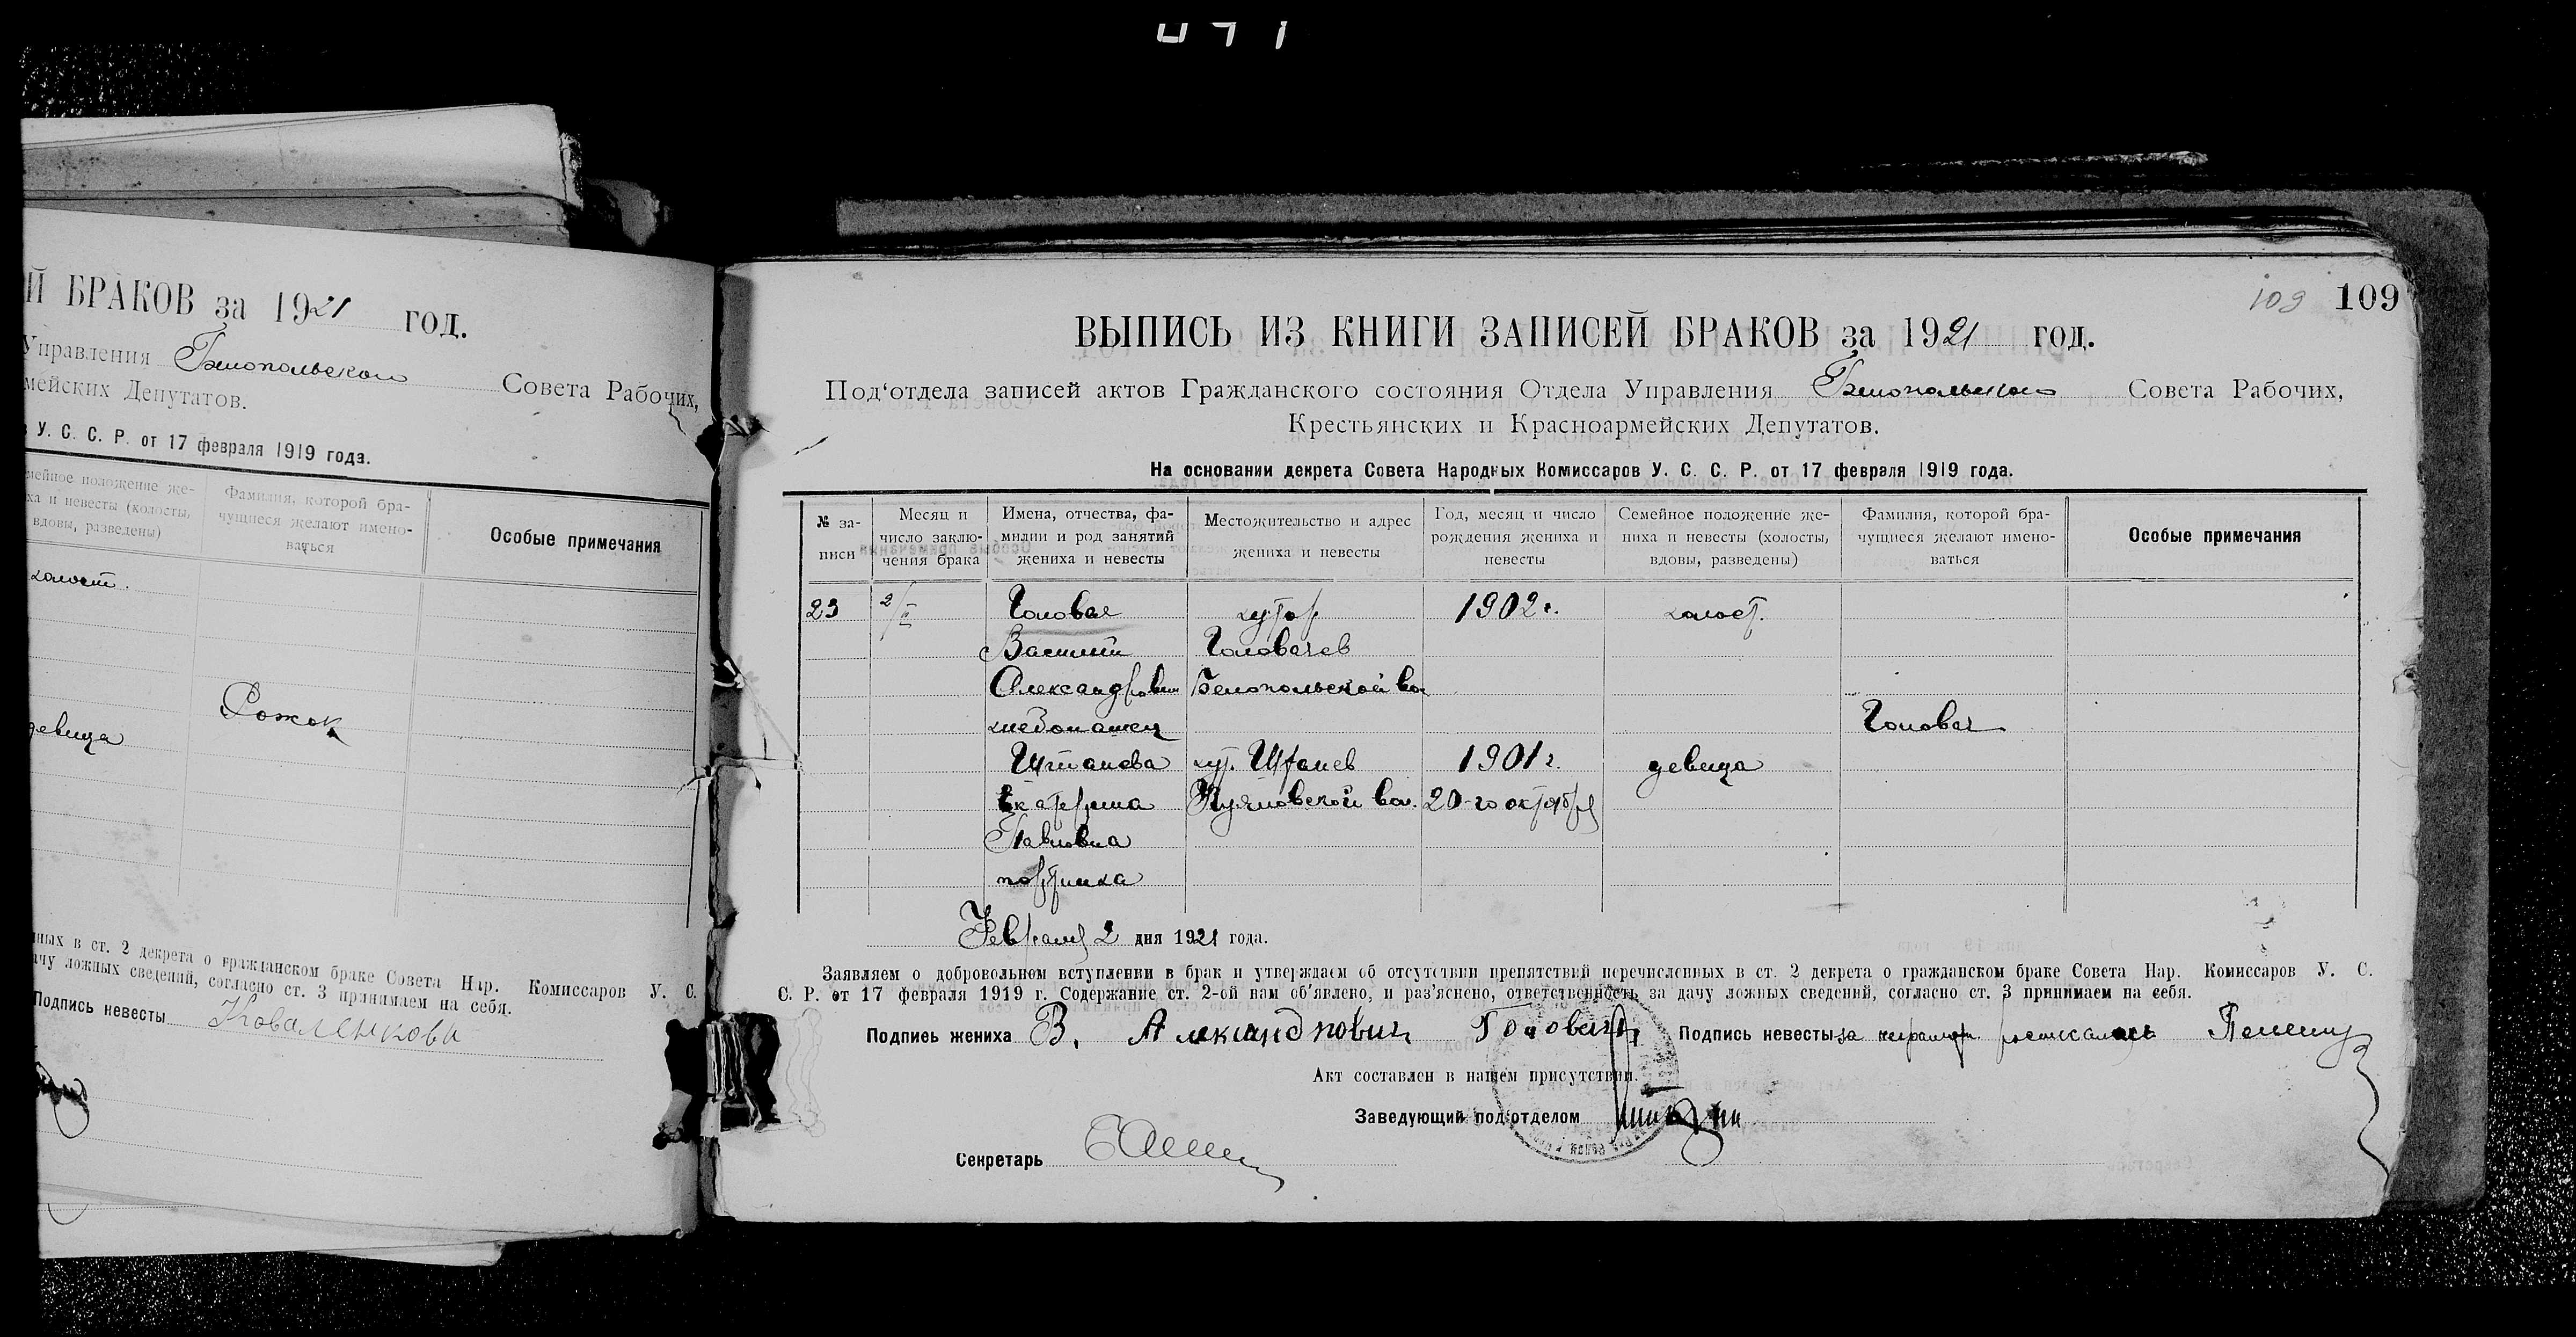 Й БРАКОВ за 1921 год.
Управления Белопольского Совета Рабочих,
мейских Депутатов.
У. С. С. Р. от 17 февраля 1919 года.
мейное положение же-
ха и невесты (холосты,
вдовы, разведены)
Фамилия, которой бра-
чущиеся желают имено-
ваться
Особые примечания
холост.
Рожок
девица
нных в ст. 2 декрета о гражданском браке Совета Нар. Комиссаров У. С.
ачу ложных сведений, согласно ст. 3 принимаем на себя.
Подпись невесты Коваленкова
109 109
ВЫПИСЬ ИЗ КНИГИ ЗАПИСЕЙ БРАКОВ за 1921 год.
Под‘отдела записей актов Гражданского состояния Отдела Управления Белопольского Совета Рабочих,
Крестьянских и Красноармейских Депутатов.
На основании декрета Совета Народных Комиссаров У. С. С. Р. от 17 февраля 1919 года.
№ за-
писи
Месяц и
число заклю-
чения брака
Имена, отчества, фа-
милии и род занятий
жениха и невесты
Местожительство и адрес
жениха и невесты
Год, месяц и число
рождения жениха и
невесты
Семейное положение же-
ниха и невесты (холосты,
вдовы, разведены)
Фамилия, которой бра-
чущиеся желают имено-
ваться
Особые примечания
23 2/II Головач хутор 1902 г. холост.
Василий Головачев
Александрович Белопольской вол
хлебопашец Головач
Штанева хут. Штанев 1901 г. девица
Екатерина Куяновской вол. 20-го октября
Павловна
портниха
Февраля 2 дня 1921 года.
Заявляем о добровольном вступлении в брак и утверждаем об отсутствии препятствий перечисленных в ст. 2 декрета о гражданском браке Совета Нар. Комиссаров У. С.
С. Р. от 17 февраля 1919 г. Содержание ст. 2-ой нам об‘явлено, и раз‘яснено, ответственность за дачу ложных сведений, согласно ст. 3 принимаем на себя.
Подпись жениха В. Александрович Головач Подпись невесты за неграмотн.
Акт составлен в нашем присутствии.
Заведующий под‘отделом
Секретарь